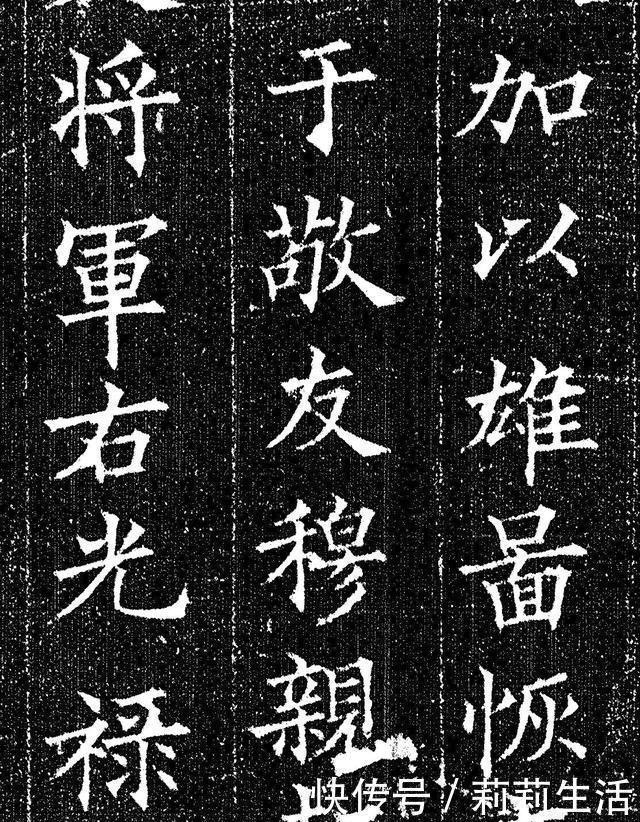 加以雄啚恢
于敬友穆親
将軍右光禄
快传号/莉莉生活